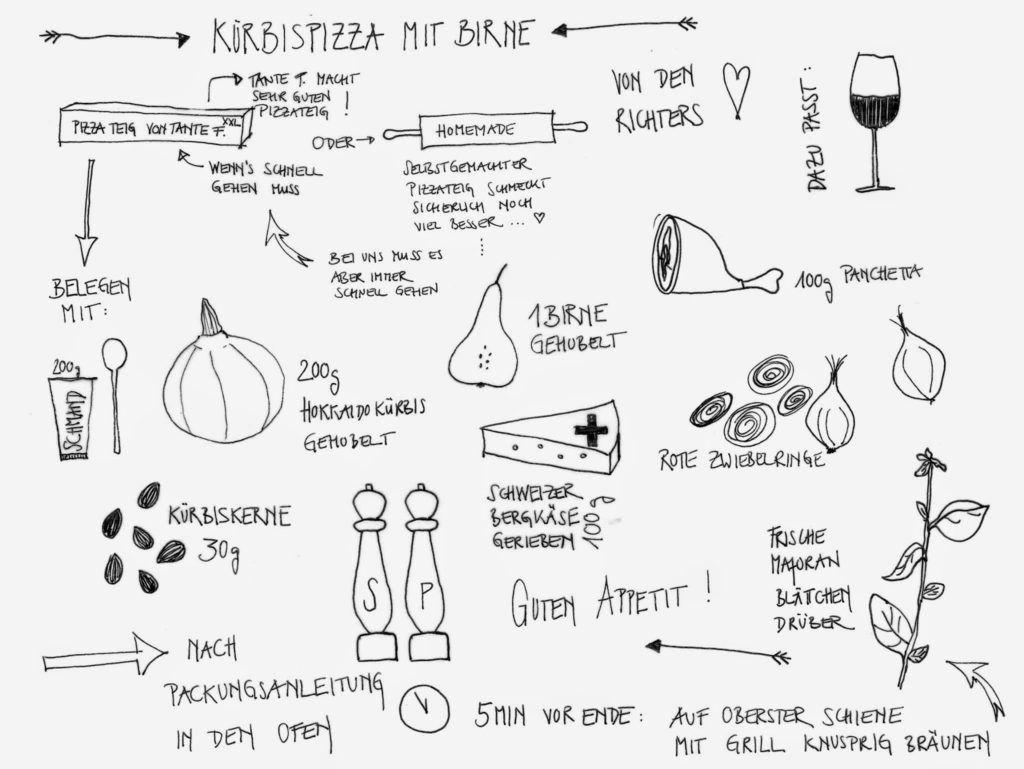 KÜRBISPIZZA MIT BIRNE
VON DEN
RICHTERS
DAZU PASST:
TANTE F. MACHT
SEHR GUTEN
PIZZATEIG !
PIZZATEIG VON TANTE F. XXL
WENN'S SCHNELL
GEHEN MUSS
ODER
HOMEMADE
SELBSTGEMACHTER
PIZZATEIG SCHMECKT
SICHERLICH NOCH
VIEL BESSER ...
BEI UNS MUSS ES
ABER IMMER
SCHNELL GEHEN
BELEGEN
MIT:
200g
SCHMAND
200g
HOKKAIDO KÜRBIS
GEHOBELT
1 BIRNE
GEHOBELT
100g PANCHETTA
ROTE ZWIEBELRINGE
SCHWEIZER
BERGKÄSE
GERIEBEN
100g
KÜRBISKERNE
30g
S
P
FRISCHE
MAJORAN
BLÄTTCHEN
DRÜBER
GUTEN APPETIT !
NACH
PACKUNGSANLEITUNG
IN DEN OFEN
5 MIN VOR ENDE: AUF OBERSTER SCHIENE
MIT GRILL KNUSPRIG BRÄUNEN